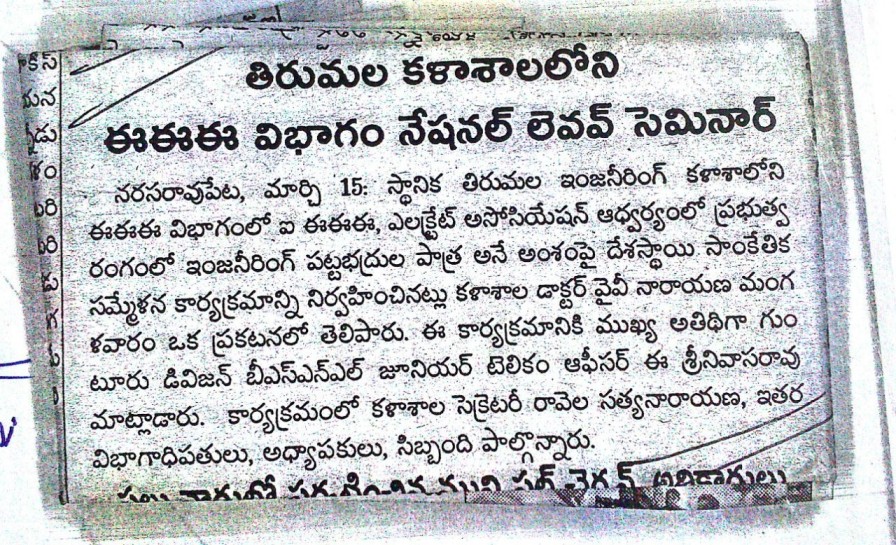 తిరుమల కళాశాలలోని
ఈఈఈ విభాగం నేషనల్ లెవవ్ సెమినార్
నరసరావుపేట, మార్చి 15: స్థానిక తిరుమల ఇంజనీరింగ్ కళాశాలోని
ఈఈఈ విభాగంలో ఐ ఈఈఈ, ఎలక్ట్రేట్ అసోసియేషన్ ఆధ్వర్యంలో ప్రభుత్వ
రంగంలో ఇంజనీరింగ్ పట్టభద్రుల పాత్ర అనే అంశంపై దేశస్థాయి సాంకేతిక
సమ్మేళన కార్యక్రమాన్ని నిర్వహించినట్లు కళాశాల డాక్టర్ వైవీ నారాయణ మంగ
ళవారం ఒక ప్రకటనలో తెలిపారు. ఈ కార్యక్రమానికి ముఖ్య అతిథిగా గుం
టూరు డివిజన్ బీఎస్ఎన్ఎల్ జూనియర్ టెలికం ఆఫీసర్ ఈ శ్రీనివాసరావు
మాట్లాడారు. కార్యక్రమంలో కళాశాల సెక్రెటరీ రావెల సత్యనారాయణ, ఇతర
విభాగాధిపతులు, అధ్యాపకులు, సిబ్బంది పాల్గొన్నారు.